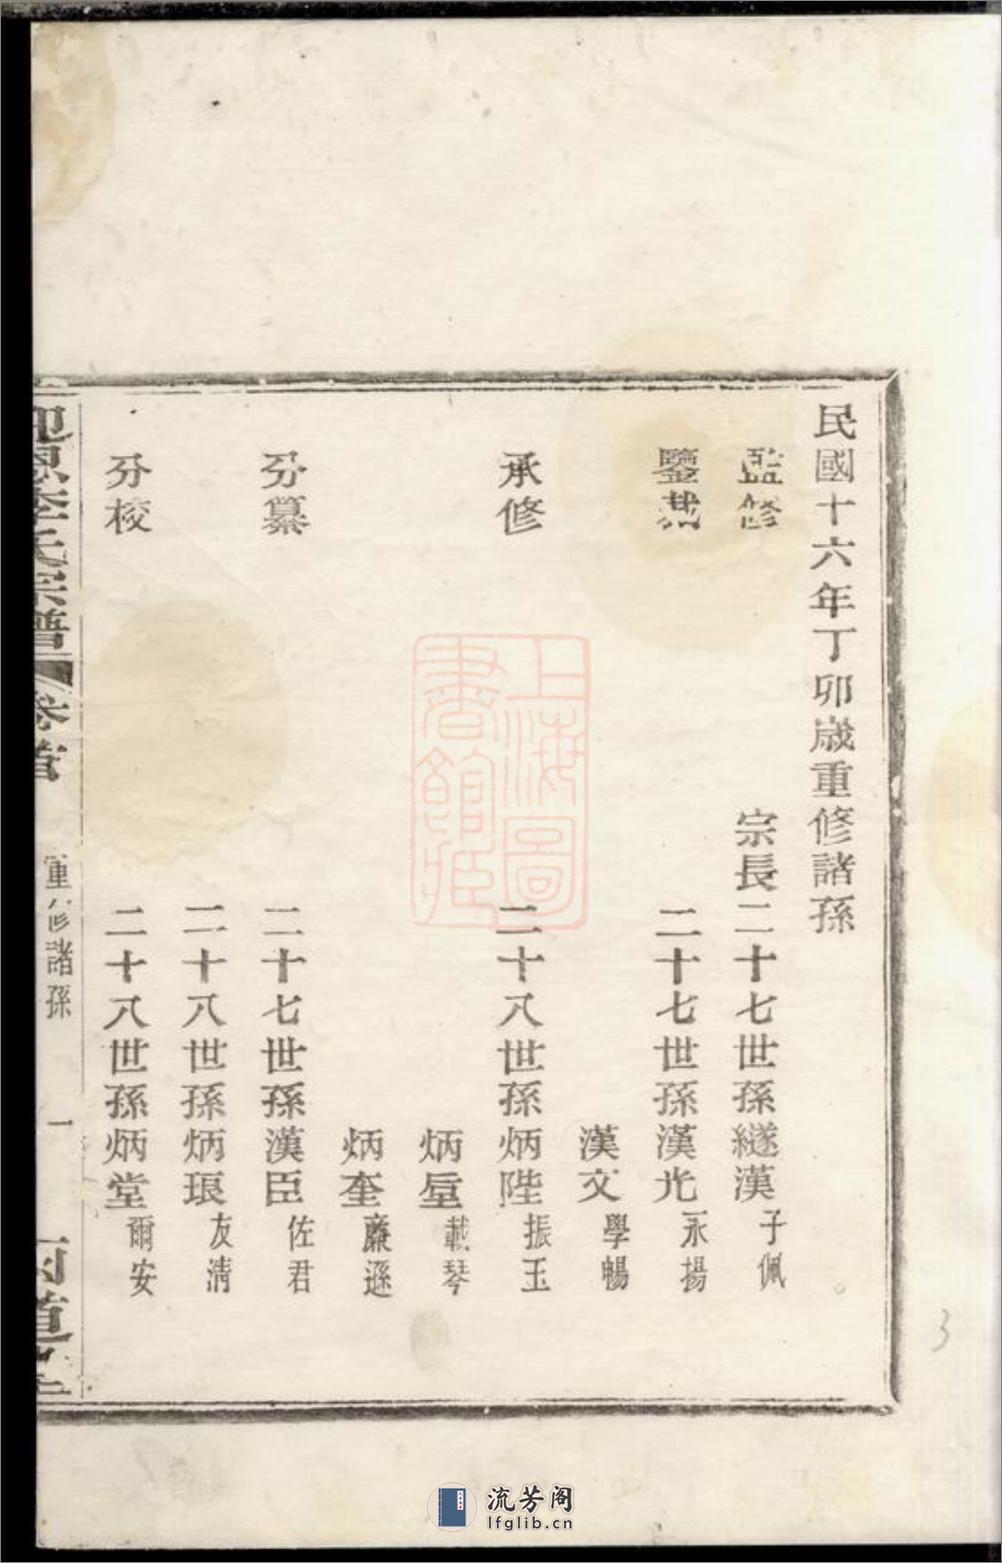 民國十六年丁卯歲重修諸孫
監修 宗長二十七世孫繼漢 子佩
鑒裁 二十七世孫漢光 永揚
漢文 學暢
承修 二十八世孫炳陞 振玉
炳垕 載琴
炳奎 廉遜
分纂 二十七世孫漢臣 佐君
二十八世孫炳琅 友清
分校 二十八世孫炳堂 爾安
迎恩李氏宗譜 卷首 重修諸孫 一
上海圖書館藏
3
流芳阁
lfglib.cn